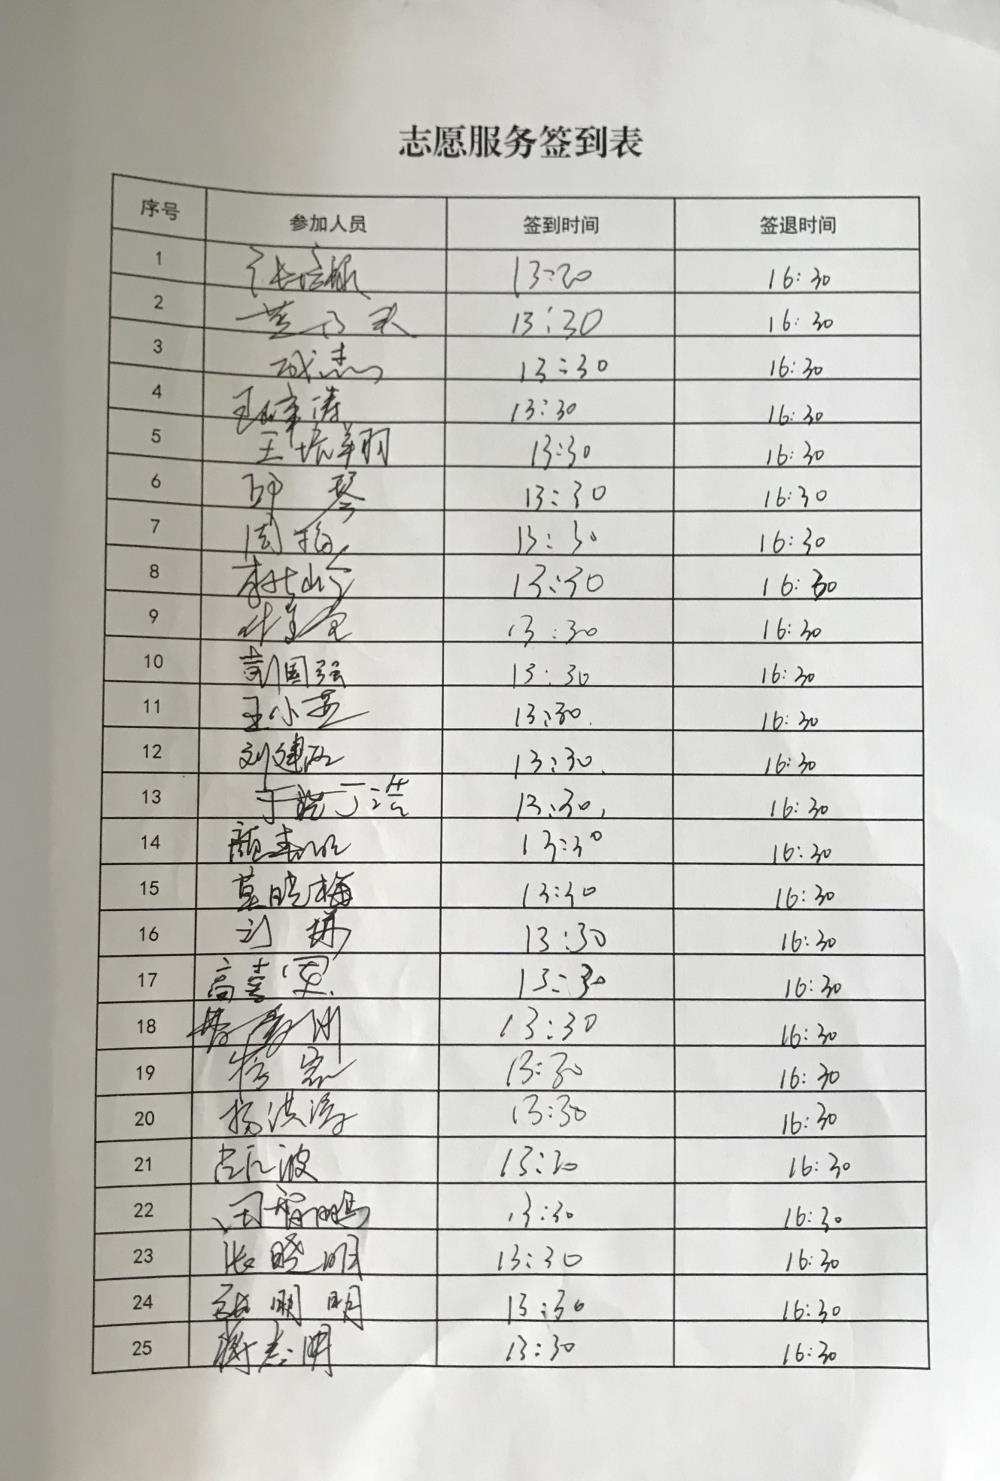 志愿服务签到表
序号 参加人员 签到时间 签退时间
1 13:20 16:30
2 13:30 16:30
3 成杰 13:30 16:30
4 13:30 16:30
5 13:30 16:30
6 琴 13:30 16:30
7 周梅 13:30 16:30
8 13:30 16:30
9 13:30 16:30
10 彭国强 13:30 16:30
11 王小英 13:30. 16:30
12 刘建 13:30. 16:30
13 13:30. 16:30
14 颜 13:30 16:30
15 莫晓梅 13:30 16:30
16 刘 13:30 16:30
17 高喜 13:30 16:30
18 13:30 16:30
19 13:30 16:30
20 杨洪 13:30 16:30
21 波 13:30 16:30
22 鹏 13:30 16:30
23 张晓明 13:30 16:30
24 明明 13:30 16:30
25 蒋志明 13:30 16:30